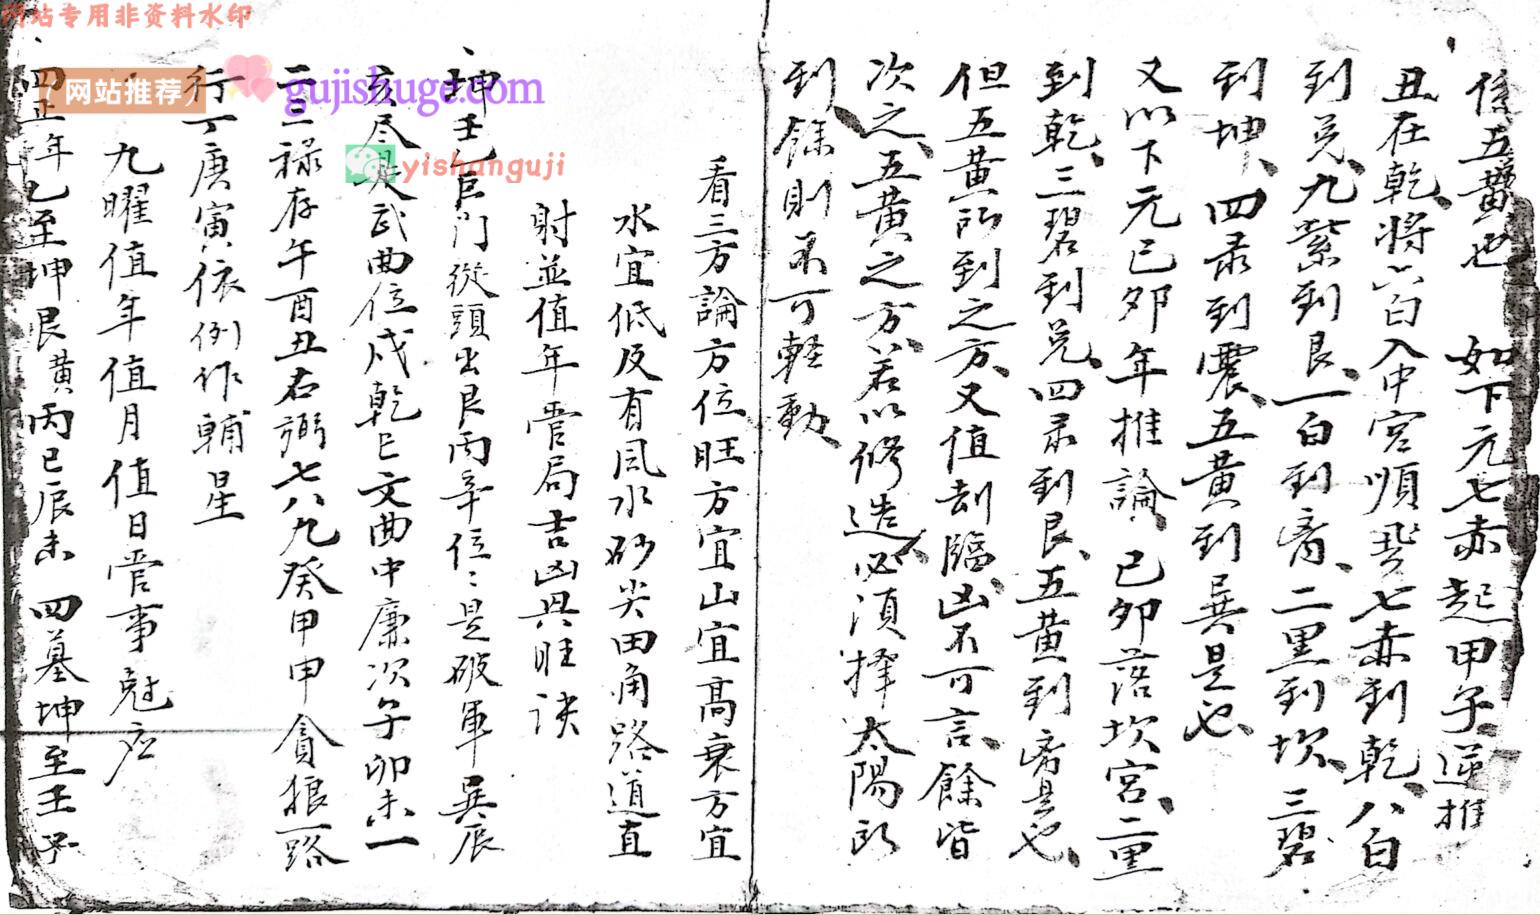 係五黃也 如下元七赤起甲子逆推
丑在乾將六白入中宮順飛七赤到乾八白
到兑九紫到艮一白到离二黑到坎三碧
到坤四彔到震五黃到巽是也
又以下元己卯年推論己卯落坎宮二黑
到乾三碧到兑四彔到艮五黃到离是也
但五黃所到之方又值刦臨凶不可言餘皆
次之五黃之方若以修造必須擇太陽所
到餘則不可輕動
看三方論方位旺方宜山宜高衰方宜
水宜低反有風水砂尖田角路道直
射並值年管局吉凶興旺訣
坤壬乙巨門從頭出艮丙辛位位是破軍巽辰
亥尽是武曲位戌乾巳文曲中廉次子卯未一
二三祿存午酉丑右弼七八九癸甲申貪狼一路
行丁庚寅依例作輔星
九曜值年值月值日管事尅应
四正年乙至坤艮黃丙巳辰未 四墓坤至壬子
网站专用非资料水印
网站推荐
gujishuge.com
yishanguji